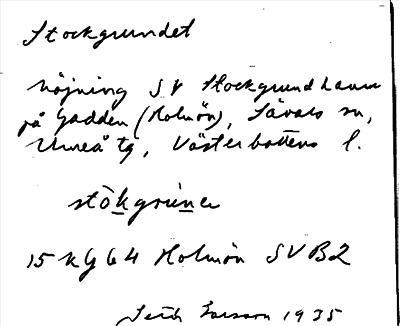 Stockgrundet
Höjning SV Stockgrundhamn
på Gadden (Holmön), Sävars sn,
Umeå tg, Västerbottens l.
stòkgrùnɐ
15 kg 64 Holmön SV B2
Larsson 1935